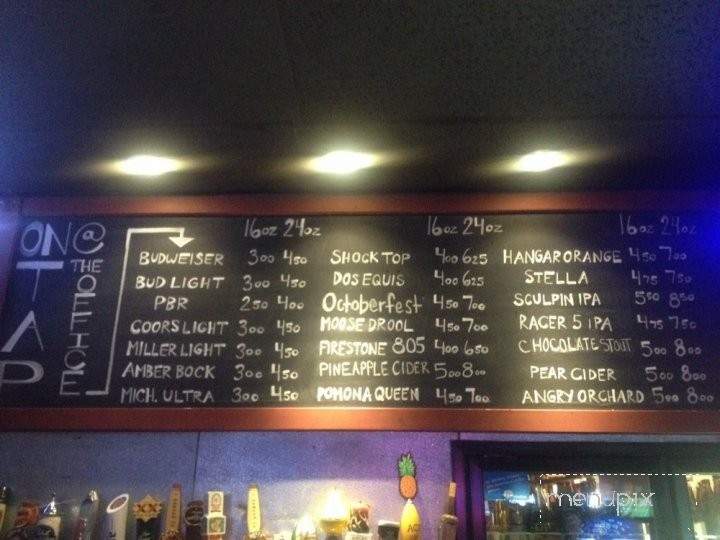 ON TAP
@ THE OFFICE
16oz 24oz
BUDWEISER 300 450
BUD LIGHT 300 450
PBR 250 400
COORS LIGHT 300 450
MILLER LIGHT 300 450
AMBER BOCK 300 450
MICH. ULTRA 300 450
16oz 24oz
SHOCK TOP 400 625
DOS EQUIS 400 625
Octoberfest 450 700
MOOSE DROOL 450 700
FIRESTONE 805 400 650
PINEAPPLE CIDER 500 800
POMONA QUEEN 450 700
16oz 24oz
HANGAR ORANGE 450 700
STELLA 475 750
SCULPIN IPA 550 850
RACER 5 IPA 475 750
CHOCOLATE STOUT 500 800
PEAR CIDER 500 800
ANGRY ORCHARD 500 800
menupix